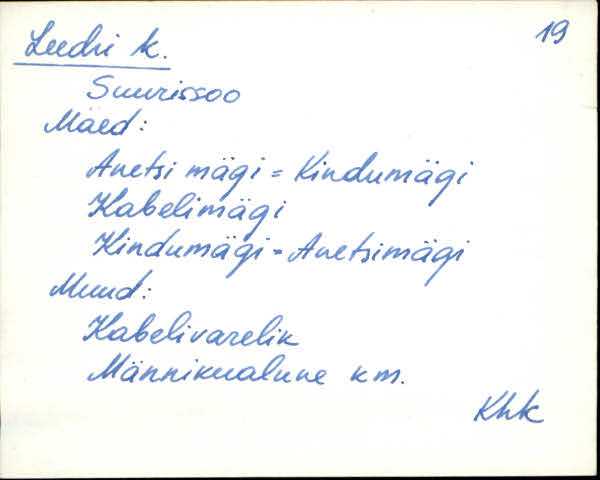 19
Leedri k.
Suurissoo
Mäed:
Anetsi mägi = Kindumägi
Kabelimägi
Kindumägi = Anetsimägi
Muud:
Kabelivarelik
Männikualune km.
Khk